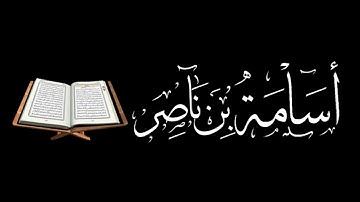 أسامة بن ناصر